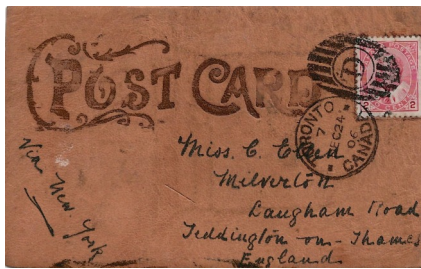 POST CARD
TORONTO CANADA
7
DEC 24
06
2
Via New York
Miss. C.
Milverton
Langham Road
Teddington-on-Thames
England